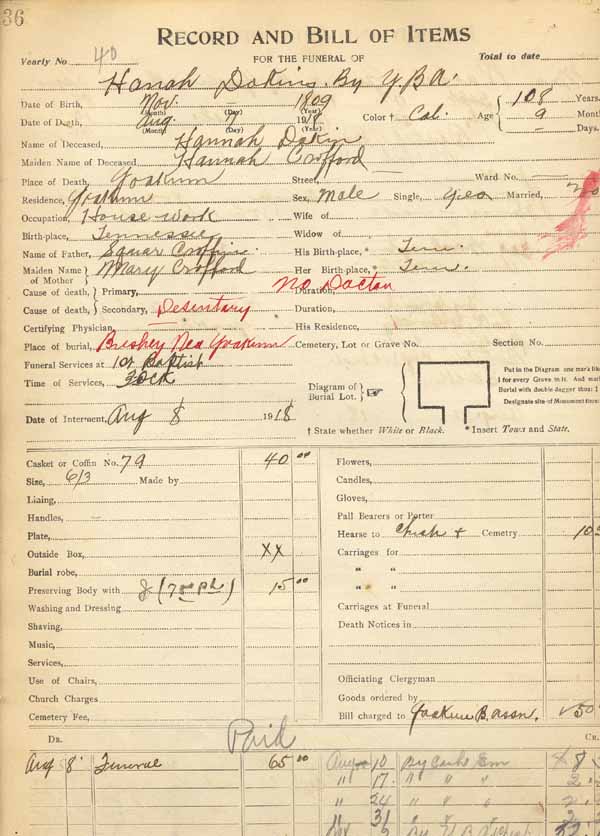 36
RECORD AND BILL OF ITEMS
Yearly No 40 FOR THE FUNERAL OF Total to date
Hanah Dakins. By Y.B.A.
Date of Birth, Nov. — 1809
(Month) (Day) (Year)
Date of Death, Aug. 7 1918
(Month) (Day) (Year)
Color † Col. Age { 108 Years.
9 Month
— Days.
Name of Deceased, Hannah Dakin
Maiden Name of Deceased, Hannah Crofford
Place of Death, Yoakum Street, Ward No.
Residence, Yoakum Sex, Male Single, yea Married, no
Occupation, House work Wife of
Birth-place, Tennessee Widow of
Name of Father, Squar His Birth-place, * Tenn.
Maiden Name of Mother } Mary Crofford Her Birth-place, * Tenn.
Cause of death, } Primary, Duration, No Doctor
Cause of death, } Secondary, Desentary Duration,
Certifying Physician, His Residence,
Place of burial, Near Yoakum Cemetery, Lot or Grave No. Section No.
Funeral Services at 1st Baptist
Time of Services, 3 ock
Date of Interment, Aug 8 1918
Diagram of Burial Lot. }
Put in the Diagram one mark like
1 for every Grave in it. And mark
Burial with double dagger thus: ‡
Designate site of Monument thus:
† State whether White or Black. * Insert Town and State.
Casket or Coffin No. 79 40 00
Size, 6/3 Made by
Lining,
Handles,
Plate,
Outside Box, XX
Burial robe,
Preserving Body with 15 00
Washing and Dressing
Shaving,
Music,
Services,
Use of Chairs,
Church Charges
Cemetery Fee,
Flowers,
Candles,
Gloves,
Pall Bearers or Porter
Hearse to Chush + Cemetry 10
Carriages for
" "
" "
Carriages at Funeral
Death Notices in
Officiating Clergyman
Goods ordered by
Bill charged to Yoakum B. assn.
DR. Paid CR.
Aug 8 Funeral 65 00
Aug 10 By Cash
" 17 " " "
" 24 " " "
" 31 " " "